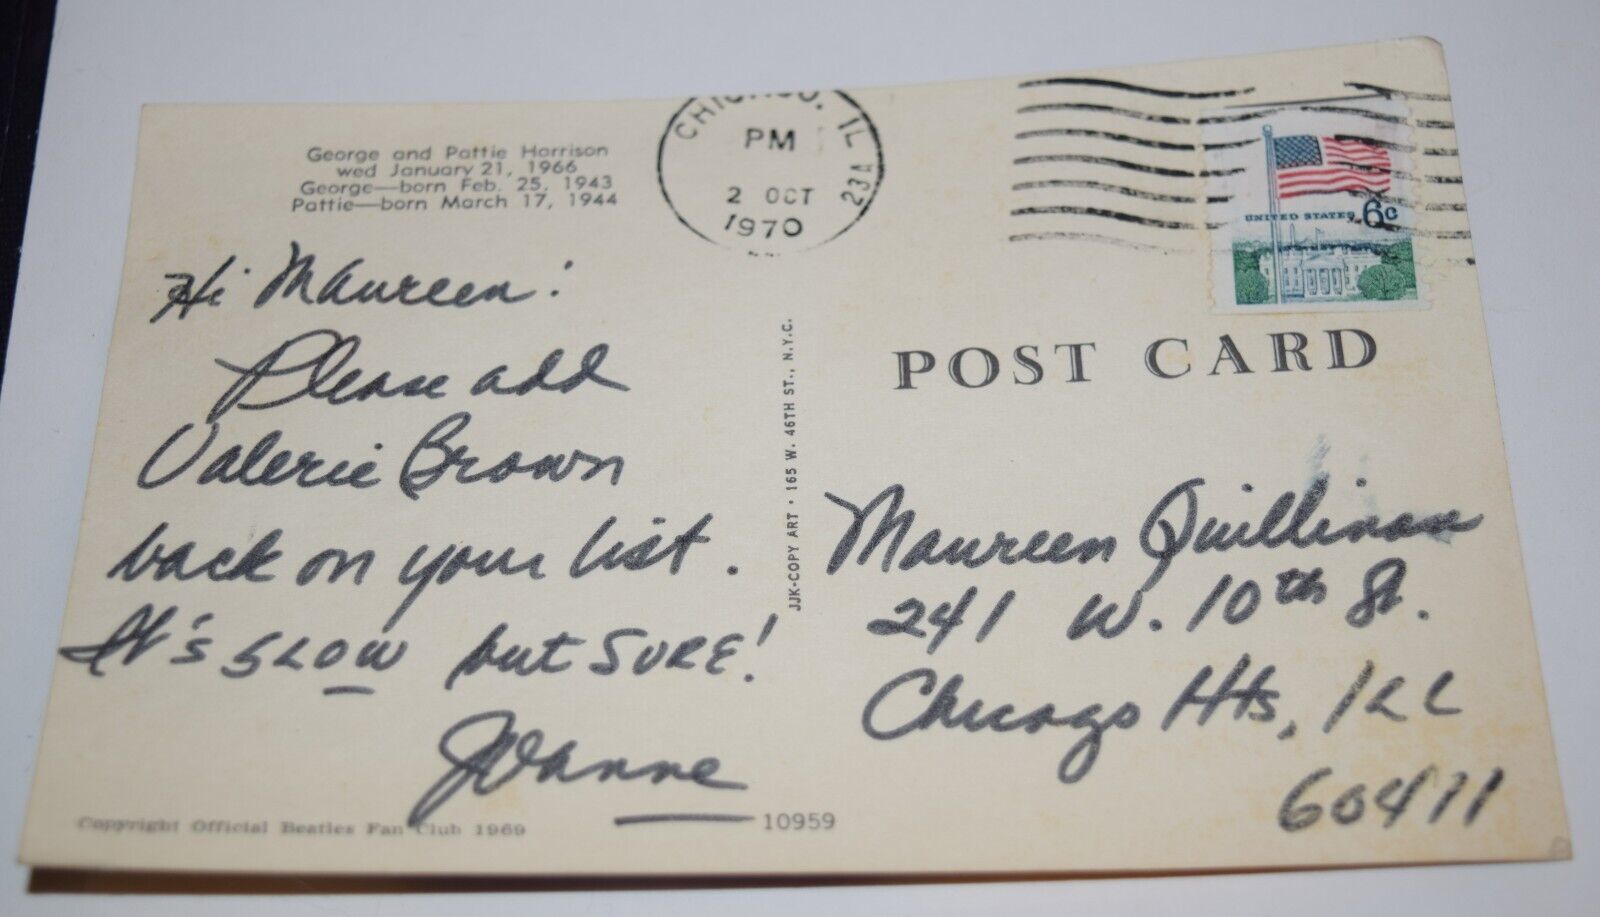 George and Pattie Harrison
wed January 21, 1966
George—born Feb. 25, 1943
Pattie—born March 17, 1944
CHICAGO, IL
PM
2 OCT
1970
23A
UNITED STATES 6c
Hi Maureen!
Please add
Valerie Brown
back on your list.
It's SLOW but SURE!
JoAnne
Copyright Official Beatles Fan Club 1969
10959
JJK-COPY ART · 165 W. 46TH ST., N.Y.C.
POST CARD
Maureen Quillinan
241 W. 10th St.
Chicago Hts, ILL
60411